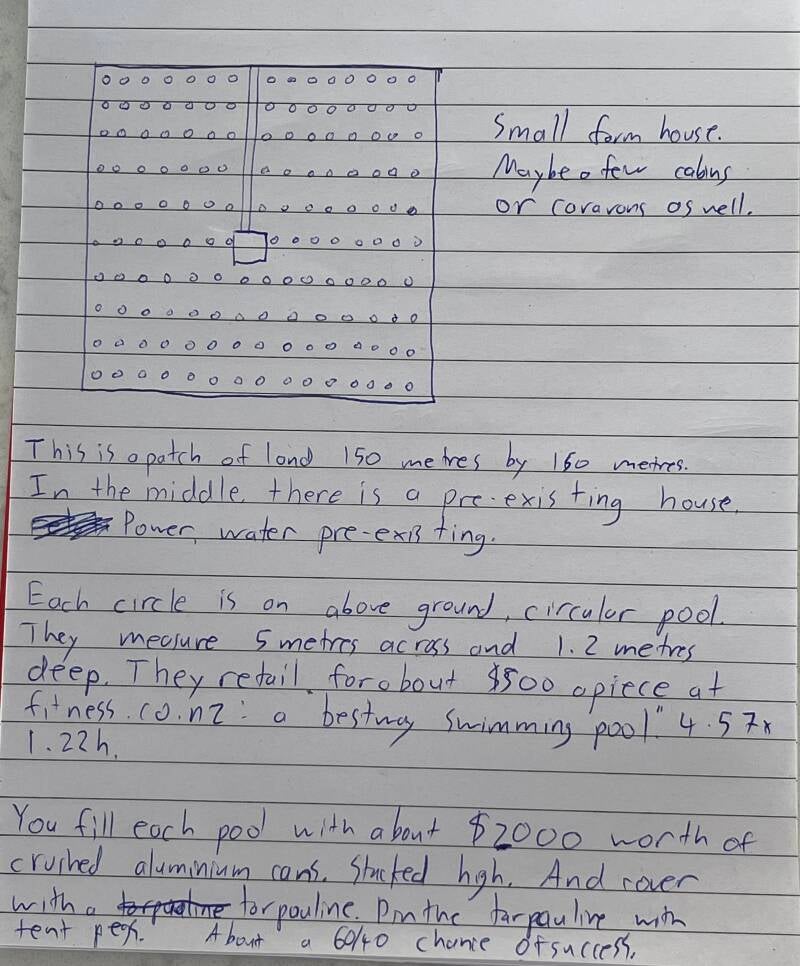 Small farm house.
Maybe a few cabins
or caravans as well.
This is a patch of land 150 metres by 150 metres.
In the middle there is a pre-existing house.
Power, water pre-existing.
Each circle is an above ground, circular pool.
They measure 5 metres across and 1.2 metres
deep. They retail for about $500 apiece at
fitness.co.nz: a bestway swimming pool" 4.57x
1.22h.
You fill each pool with about $2000 worth of
crushed aluminium cans. Stacked high. And cover
with a tarpauline. Pin the tarpauline with
tent pegs. About a 60/40 chance of success.